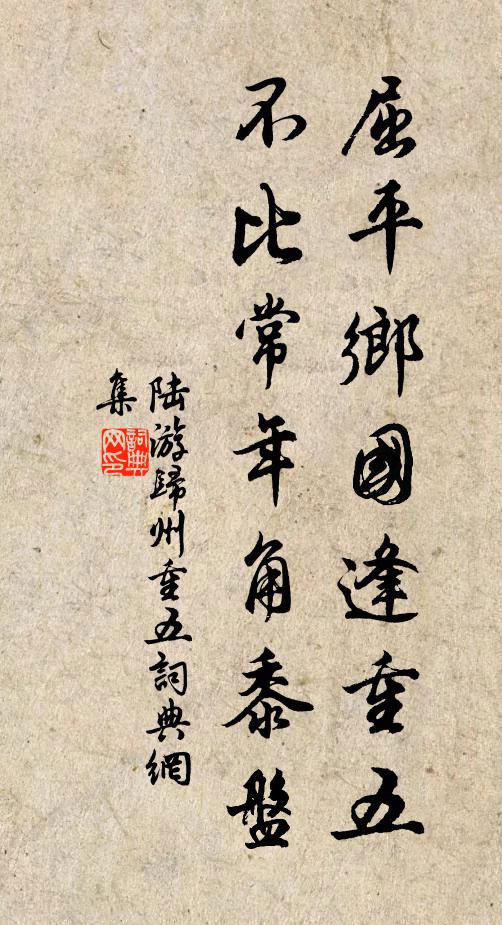 屈平鄉國逢重五
不比常年角黍盤
陸游歸州重五詞典網
集
詞典
网印